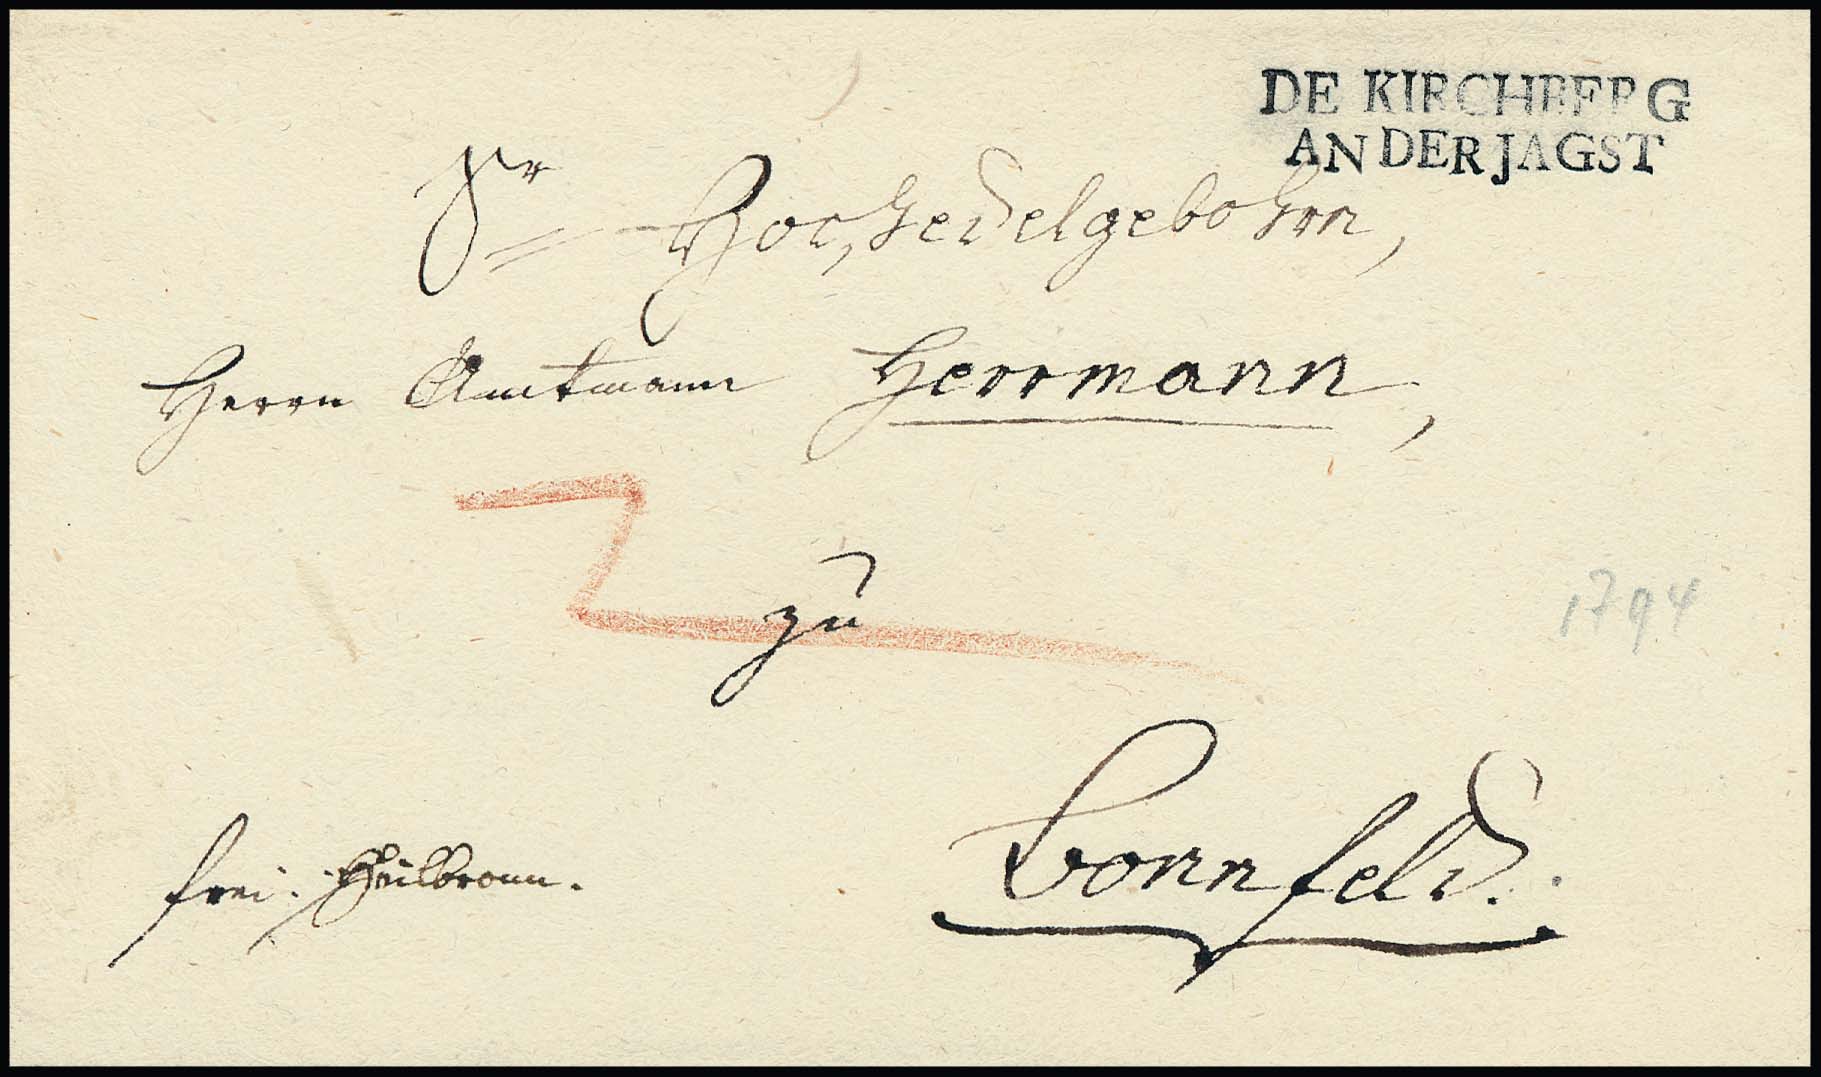 DE KIRCHBERG
AN DER JAGST
Sr Hochedelgebohrn,
Herrn Amtmann Herrmann,
zu
1794
Bonnfeld.
frei. Heilbronn.